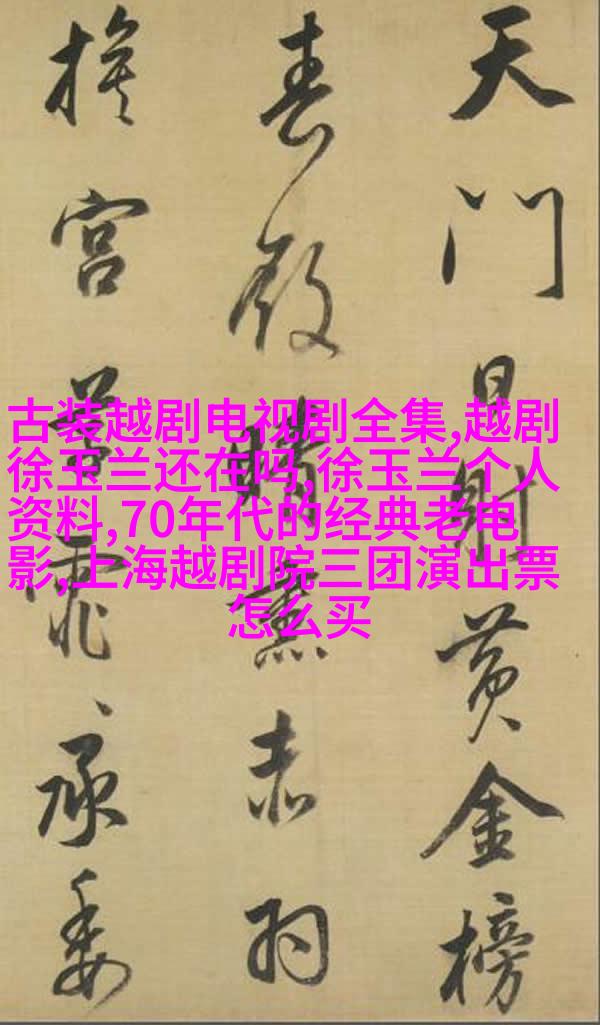 古装越剧电视剧全集,越剧
徐玉兰还在吗,徐玉兰个人
资料,70年代的经典老电
影,上海越剧院三团演出票
怎么买
天门日射黄金榜
春殿晴熏赤羽
旗宫草霏〻承委